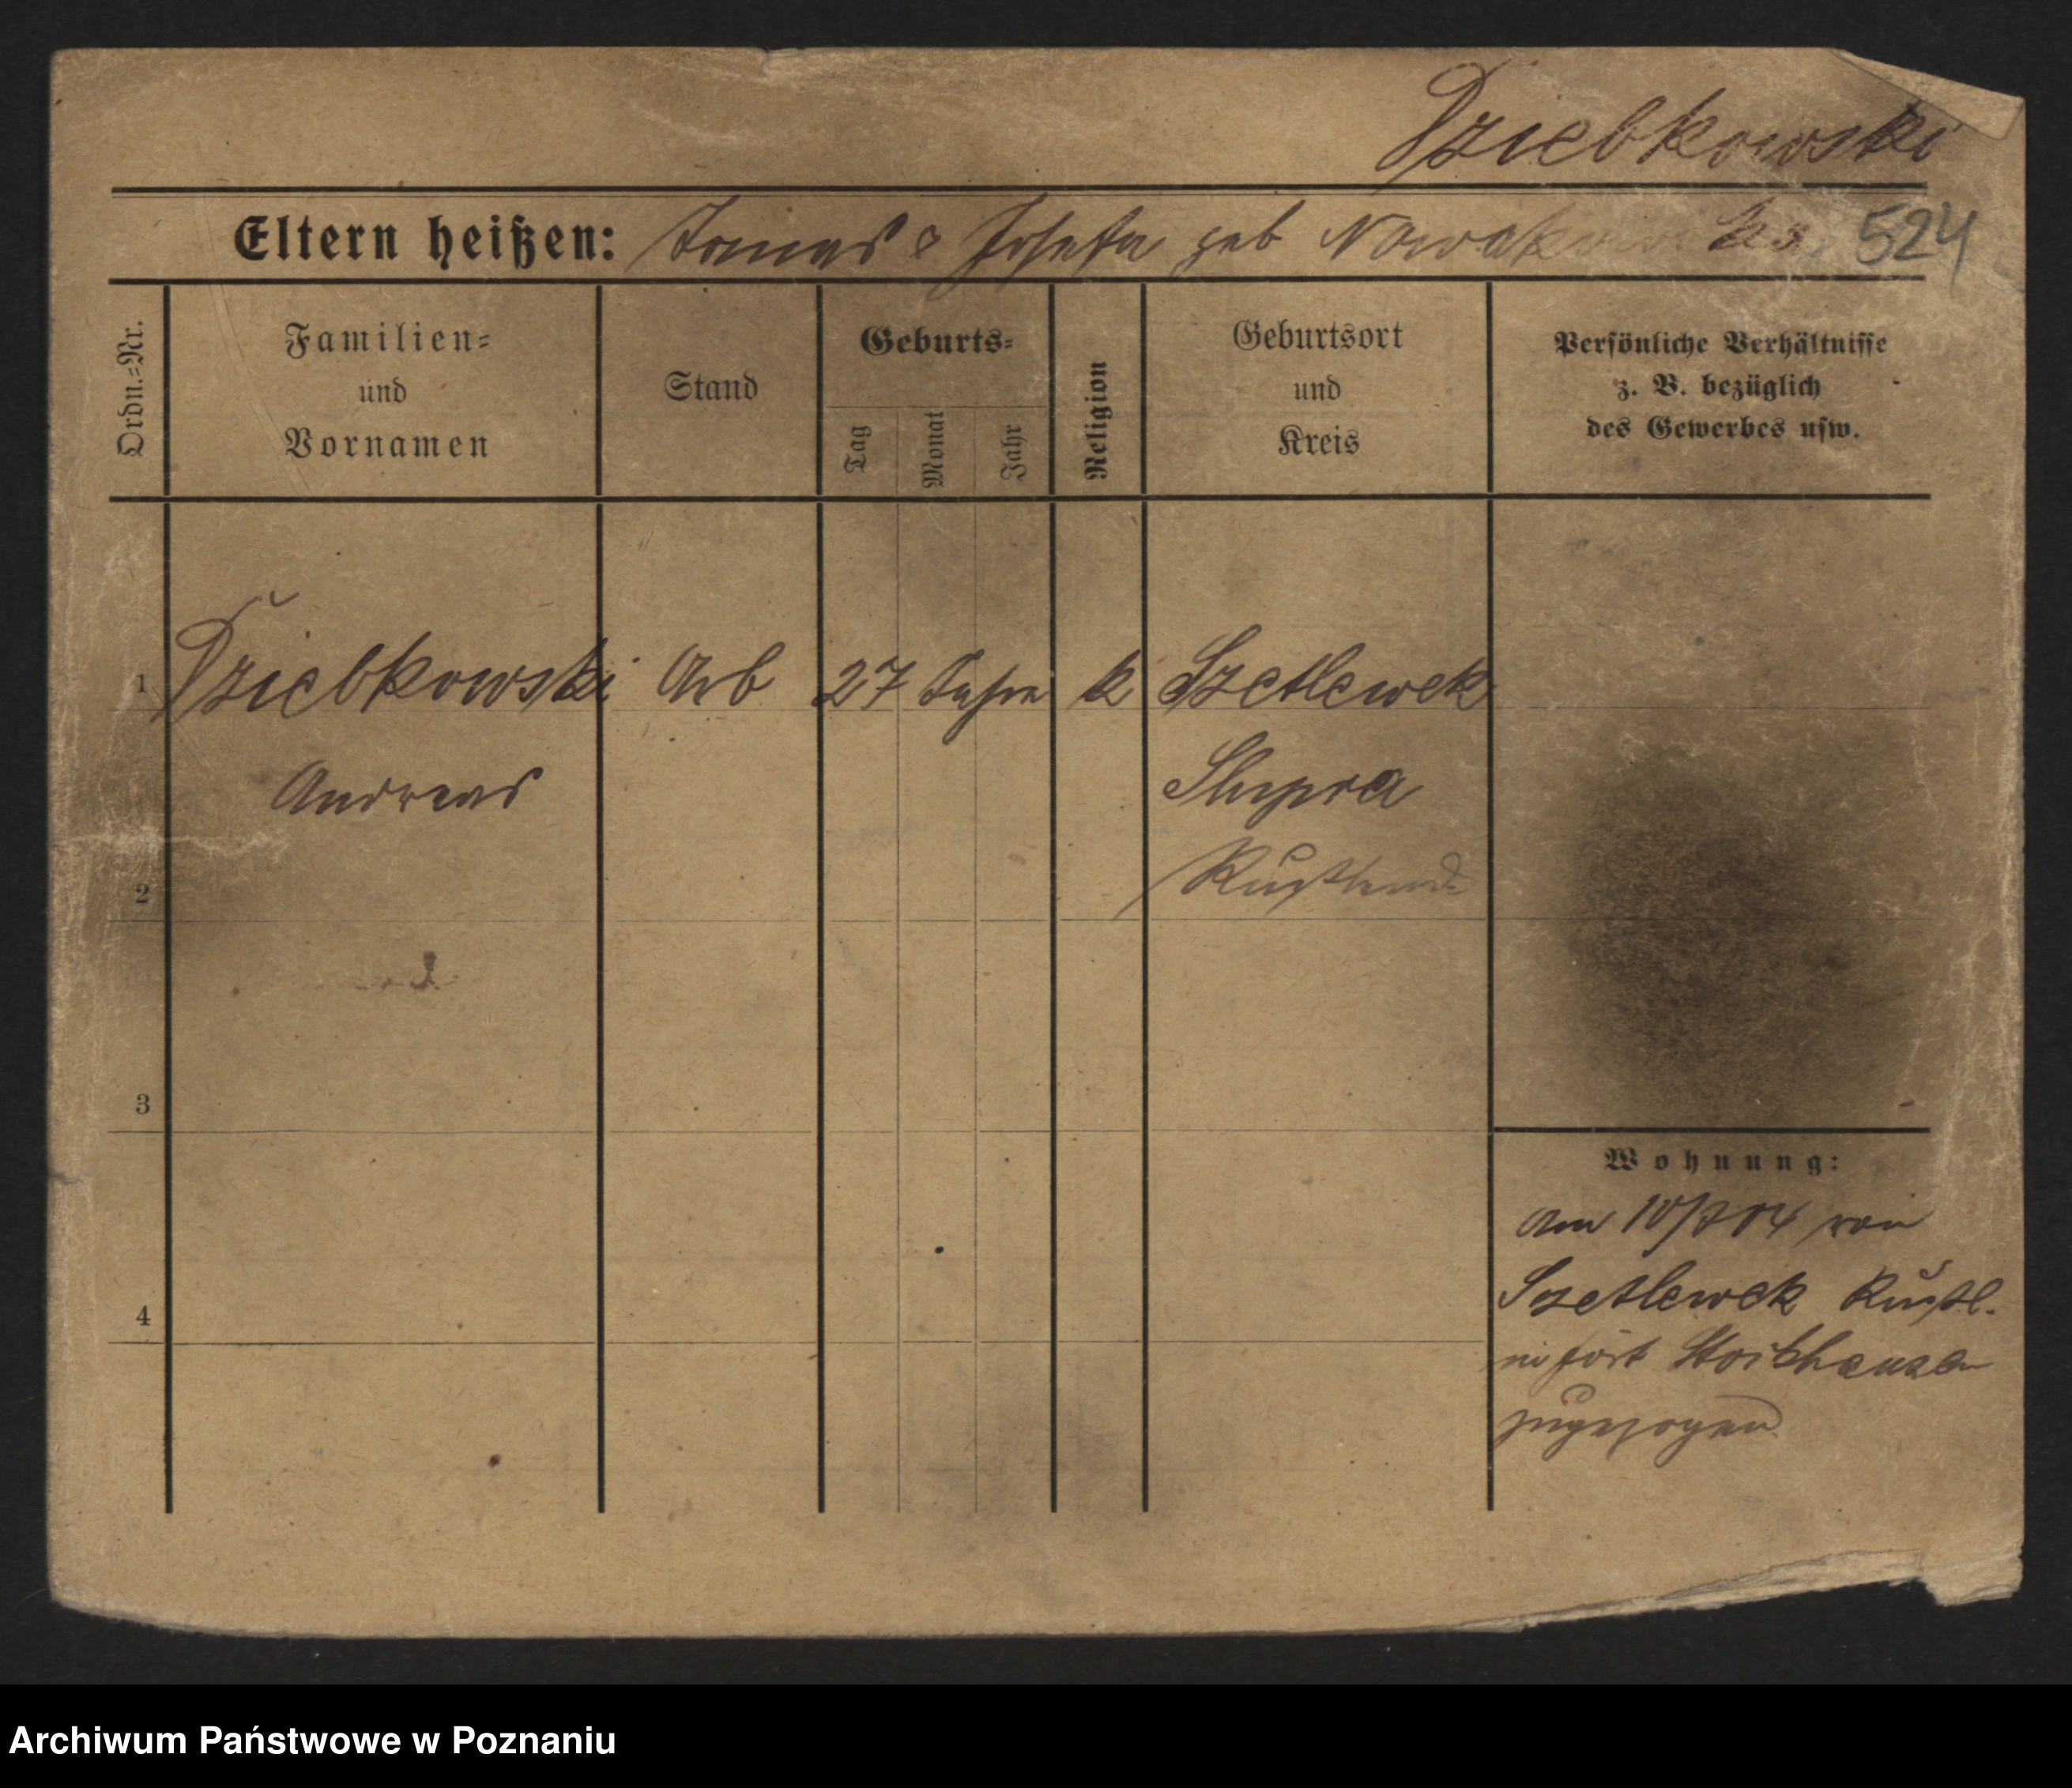 Dziebkowski
Eltern heißen: Tomas & Josefa geb Nowakowska 524
Ordn.=Nr.
Familien=
und
Vornamen
Stand
Geburts=
Tag
Monat
Jahr
Religion
Geburtsort
und
Kreis
Persönliche Verhältnisse
z. B. bezüglich
des Gewerbes usw.
1 Dziebkowski Arb 27 Jahre k Szetlewek
Andreas Slupca
2 Rußland
3
4
Wohnung:
Am 10/7 04 von
Szetlewek Rußl.
zugezogen
Archiwum Państwowe w Poznaniu